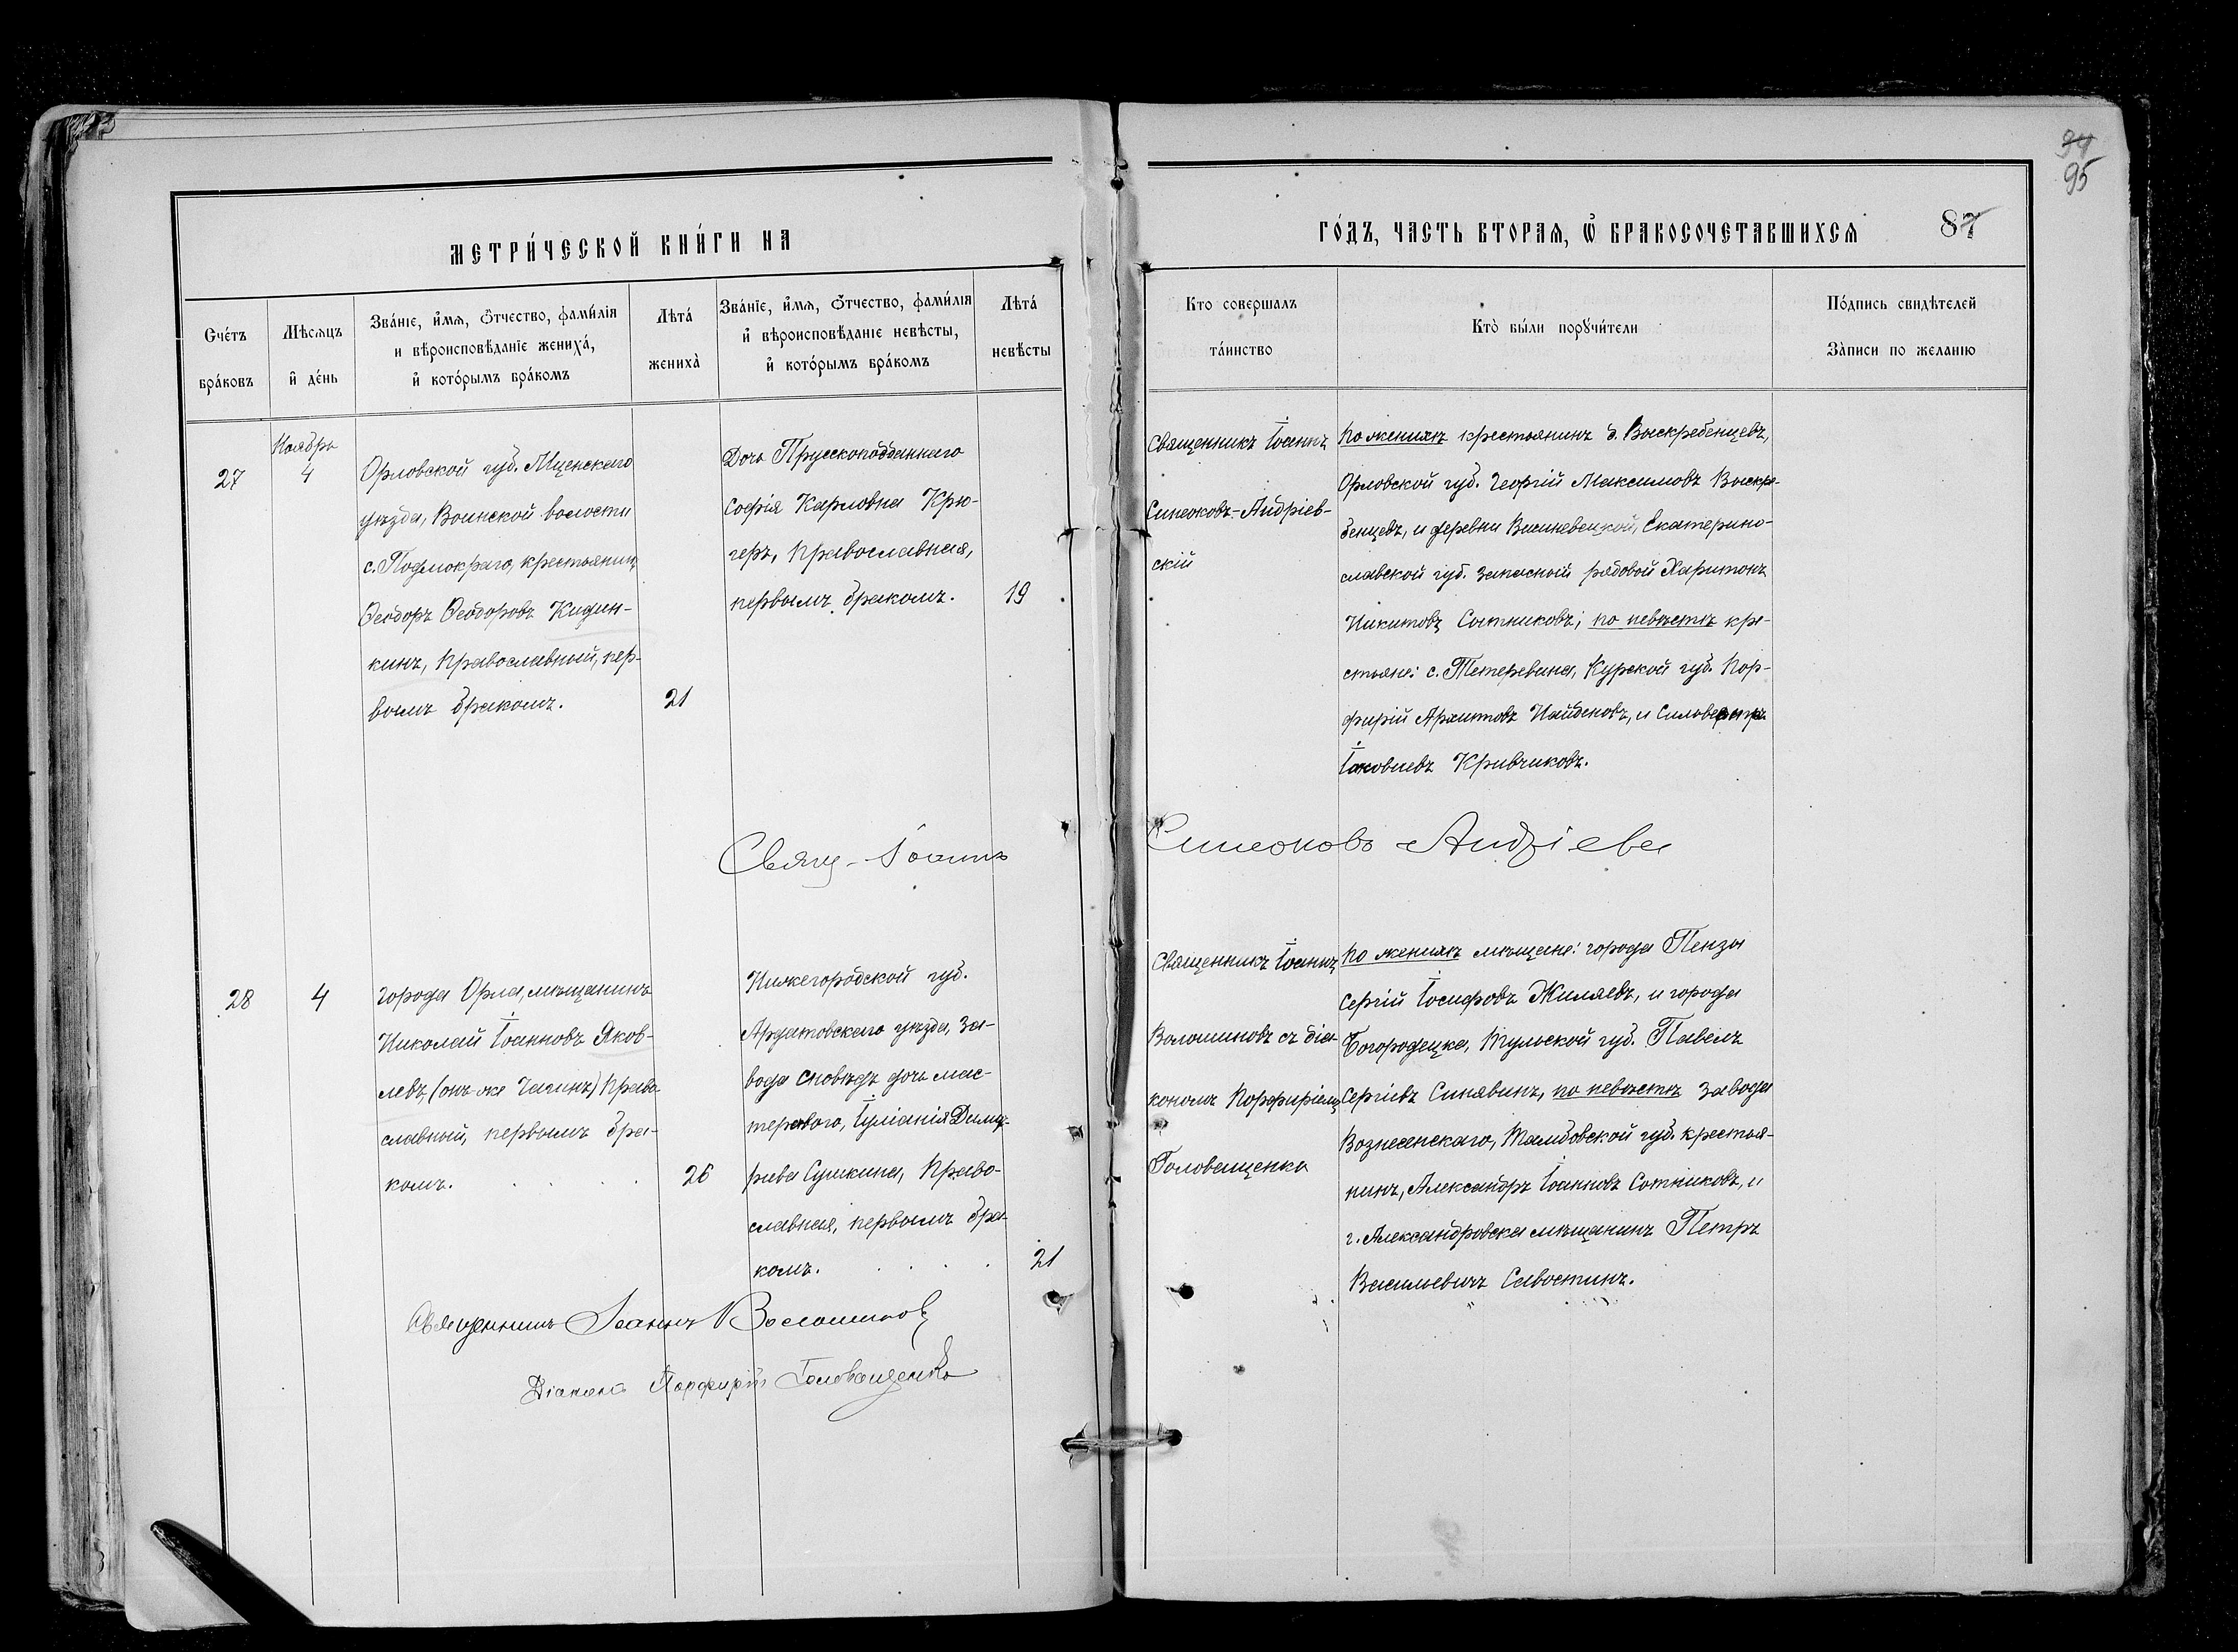 94
95
МЕТРИ́ЧЕСКОЙ КНИ́ГИ НА
ГО́ДЪ, ЧАСТЬ ВТОРАѦ, Ѽ БРАКОСОЧЕТАВШИХСѦ
87
Сче́тъ
бра́ковъ
Мѣсѧцъ
и҆ де́нь
Зва́нїе, и҆мѧ, ѻ҆тчество, фами́лїѧ
и вѣроисповѣданїе жениха́,
и҆ кото́рымъ бра́комъ
Лѣта́
жениха̀
Зва́нїе, и҆мѧ, ѻ҆тчество, фами́лїѧ
и҆ вѣроисповѣданїе невѣсты,
и҆ кото́рымъ бра́комъ
Лѣта́
невѣсты
Кто совершалъ
та́инство
Кто̀ бы́ли порꙋчи́тели
По́дпись свидѣтелей
За̀писи по желанію
27
Ноябрь
4
Орловской губ. Мценскаго
уѣзда, Воинской волости
с. Подмокраго, крестьянинъ
Ѳеодоръ Ѳеодоровъ Кидин-
кинъ, православный, пер-
вымъ бракомъ.
21
Дочь Прусскоподданнаго
Софія Карловна Крю-
геръ, православная,
первымъ бракомъ.
19
Священникъ Іоаннъ
Симеоновъ-Андріев-
скій
По женихѣ крестьянинъ д. Выскребенцевъ,
Орловской губ. Георгій Максимовъ Выскре-
бенцевъ, и деревни Вишневецкой, Екатерино-
славской губ. запасный рядовой Харитонъ
Никитовъ Сотниковъ; по невѣстѣ кре-
стьяне: с. Тетеревина, Курской губ. Пор-
фирій Найденовъ, и Сильвестръ
Іаковлевъ Кривчиковъ.
Свящ. Іоаннъ
Симеоновъ Андріевск
28
4
Города Орла, мѣщанинъ
Николай Іоанновъ Яков-
левъ, (онъ же Чагинъ) право-
славный, первымъ бра-
комъ.
26
Нижегородской губ.
Ардатовскаго уѣзда, за-
вода Сноведь дочь мас-
терового, Іуліанія Димит-
ріева Сушкина, право-
славная, первымъ бра-
комъ.
21
Священникъ Іоаннъ
Волошиновъ съ діа-
кономъ Порфиріемъ
Головащенко
По женихѣ мѣщане: города Пензы
Сергій Іосифовъ Жиляевъ, и города
Богородецка, Тульской губ. Павелъ
Сергіевъ Синявинъ, по невѣстѣ завода
Вознесенскаго, Тамбовской губ. крестья-
нинъ, Александръ Іоанновъ Сотниковъ, и
г. Александровска мѣщанинъ Петръ
Васильевичъ Савостинъ.
Священникъ Іоаннъ Волошиновъ
Діаконъ Порфирій Головащенко